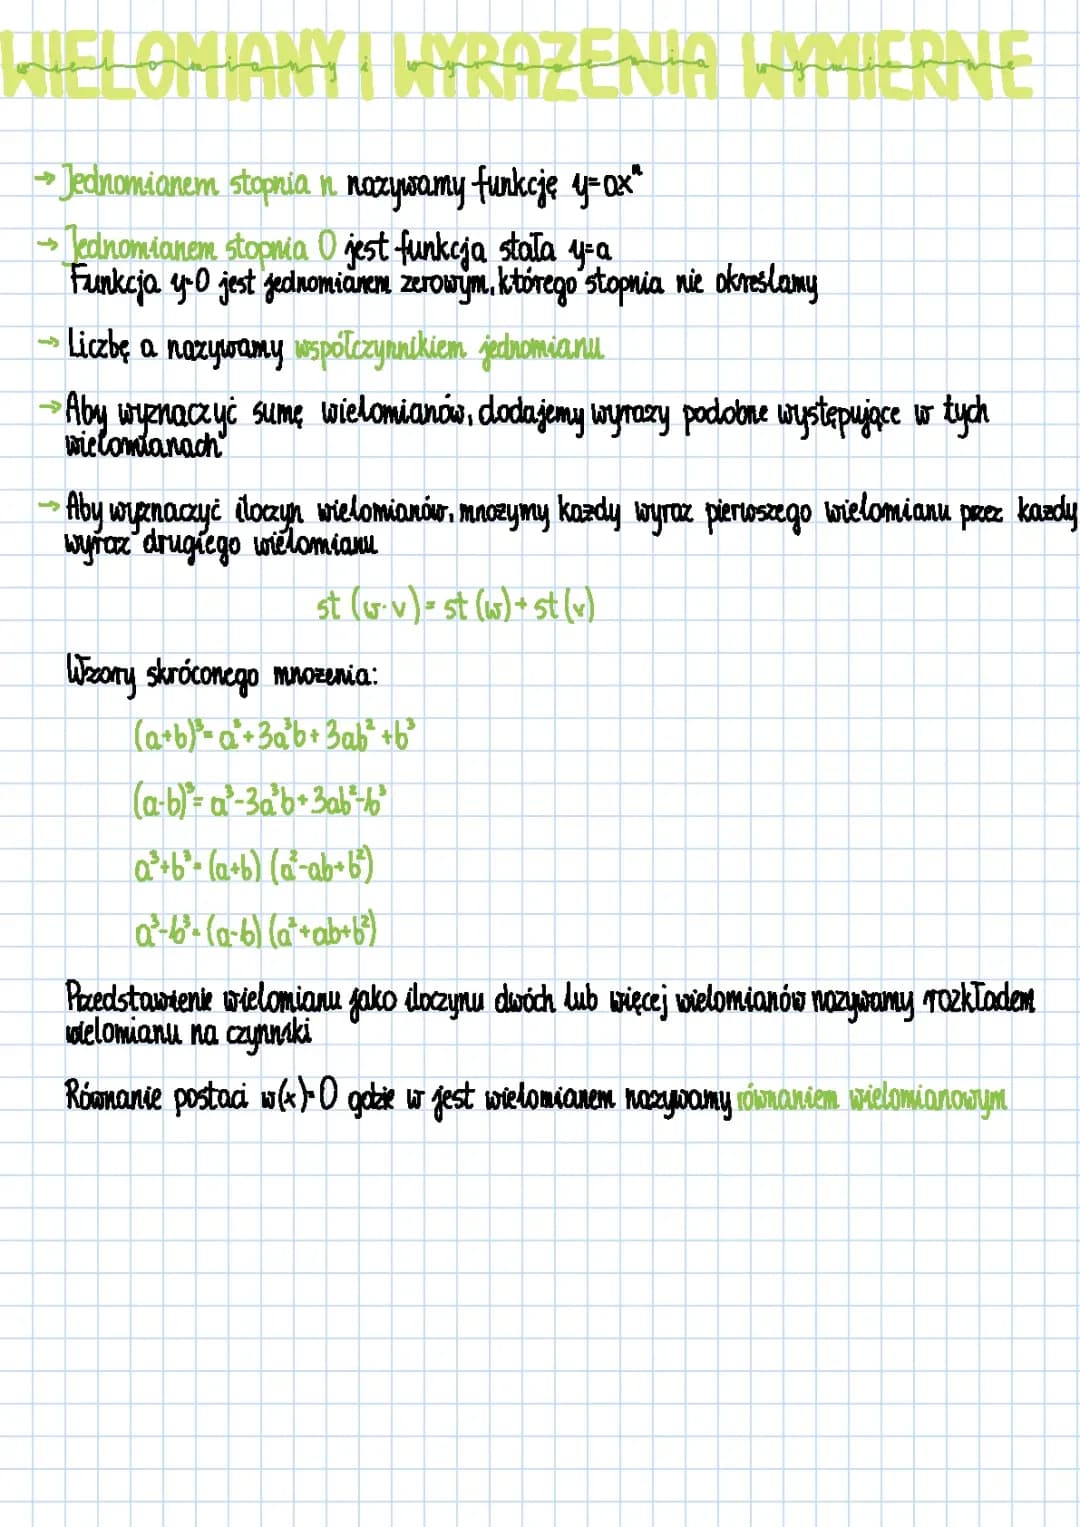 WIELOMIANY I WYRAZENIA WYMIERNE
wielomiany i wyrazenia wymierne
→ Jednomianem stopnia n nazywamy funkcję y=axⁿ
→ Jednomianem stopnia 0 jest funkcja stała y=a
Funkcja y=0 jest jednomianem zerowym, którego stopnia nie określamy
→ Liczbę a nazywamy współczynnikiem jednomianu
→ Aby wyznaczyć sumę wielomianów, dodajemy wyrazy podobne występujące w tych
wielomianach
→ Aby wyznaczyć iloczyn wielomianów, mnożymy każdy wyraz pierwszego wielomianu przez każdy
wyraz drugiego wielomianu
st (w·v) = st (w) + st (v)
Wzory skróconego mnożenia:
(a+b)³= a³+3a³b+3ab²+b³
(a-b)³= a³-3a³b+3ab²-b³
a³+b³= (a+b) (a²-ab+b²)
a³-b³= (a-b) (a²+ab+b²)
Przedstawienie wielomianu jako iloczynu dwóch lub więcej wielomianów nazywamy rozkładem
wielomianu na czynniki
Równanie postaci w(x)=0 gdzie w jest wielomianem nazywamy równaniem wielomianowym